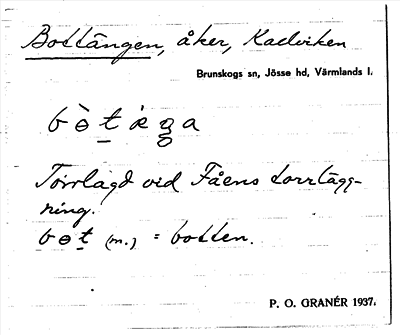 Bottängen, åker, Kaelviken
Brunskogs sn, Jösse hd, Värmlands l.
Torrlagd vid Fåens torrlägg-
ning.
(m.) = botten.
P. O. GRANÉR 1937.